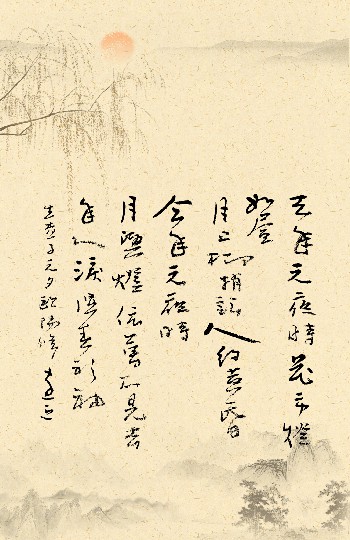 去年元夜時花市燈
如晝
月上柳梢頭人約黄昏后
今年元夜時
月與燈依舊不見去
年人淚濕春衫袖
生查子元夕歐陽修